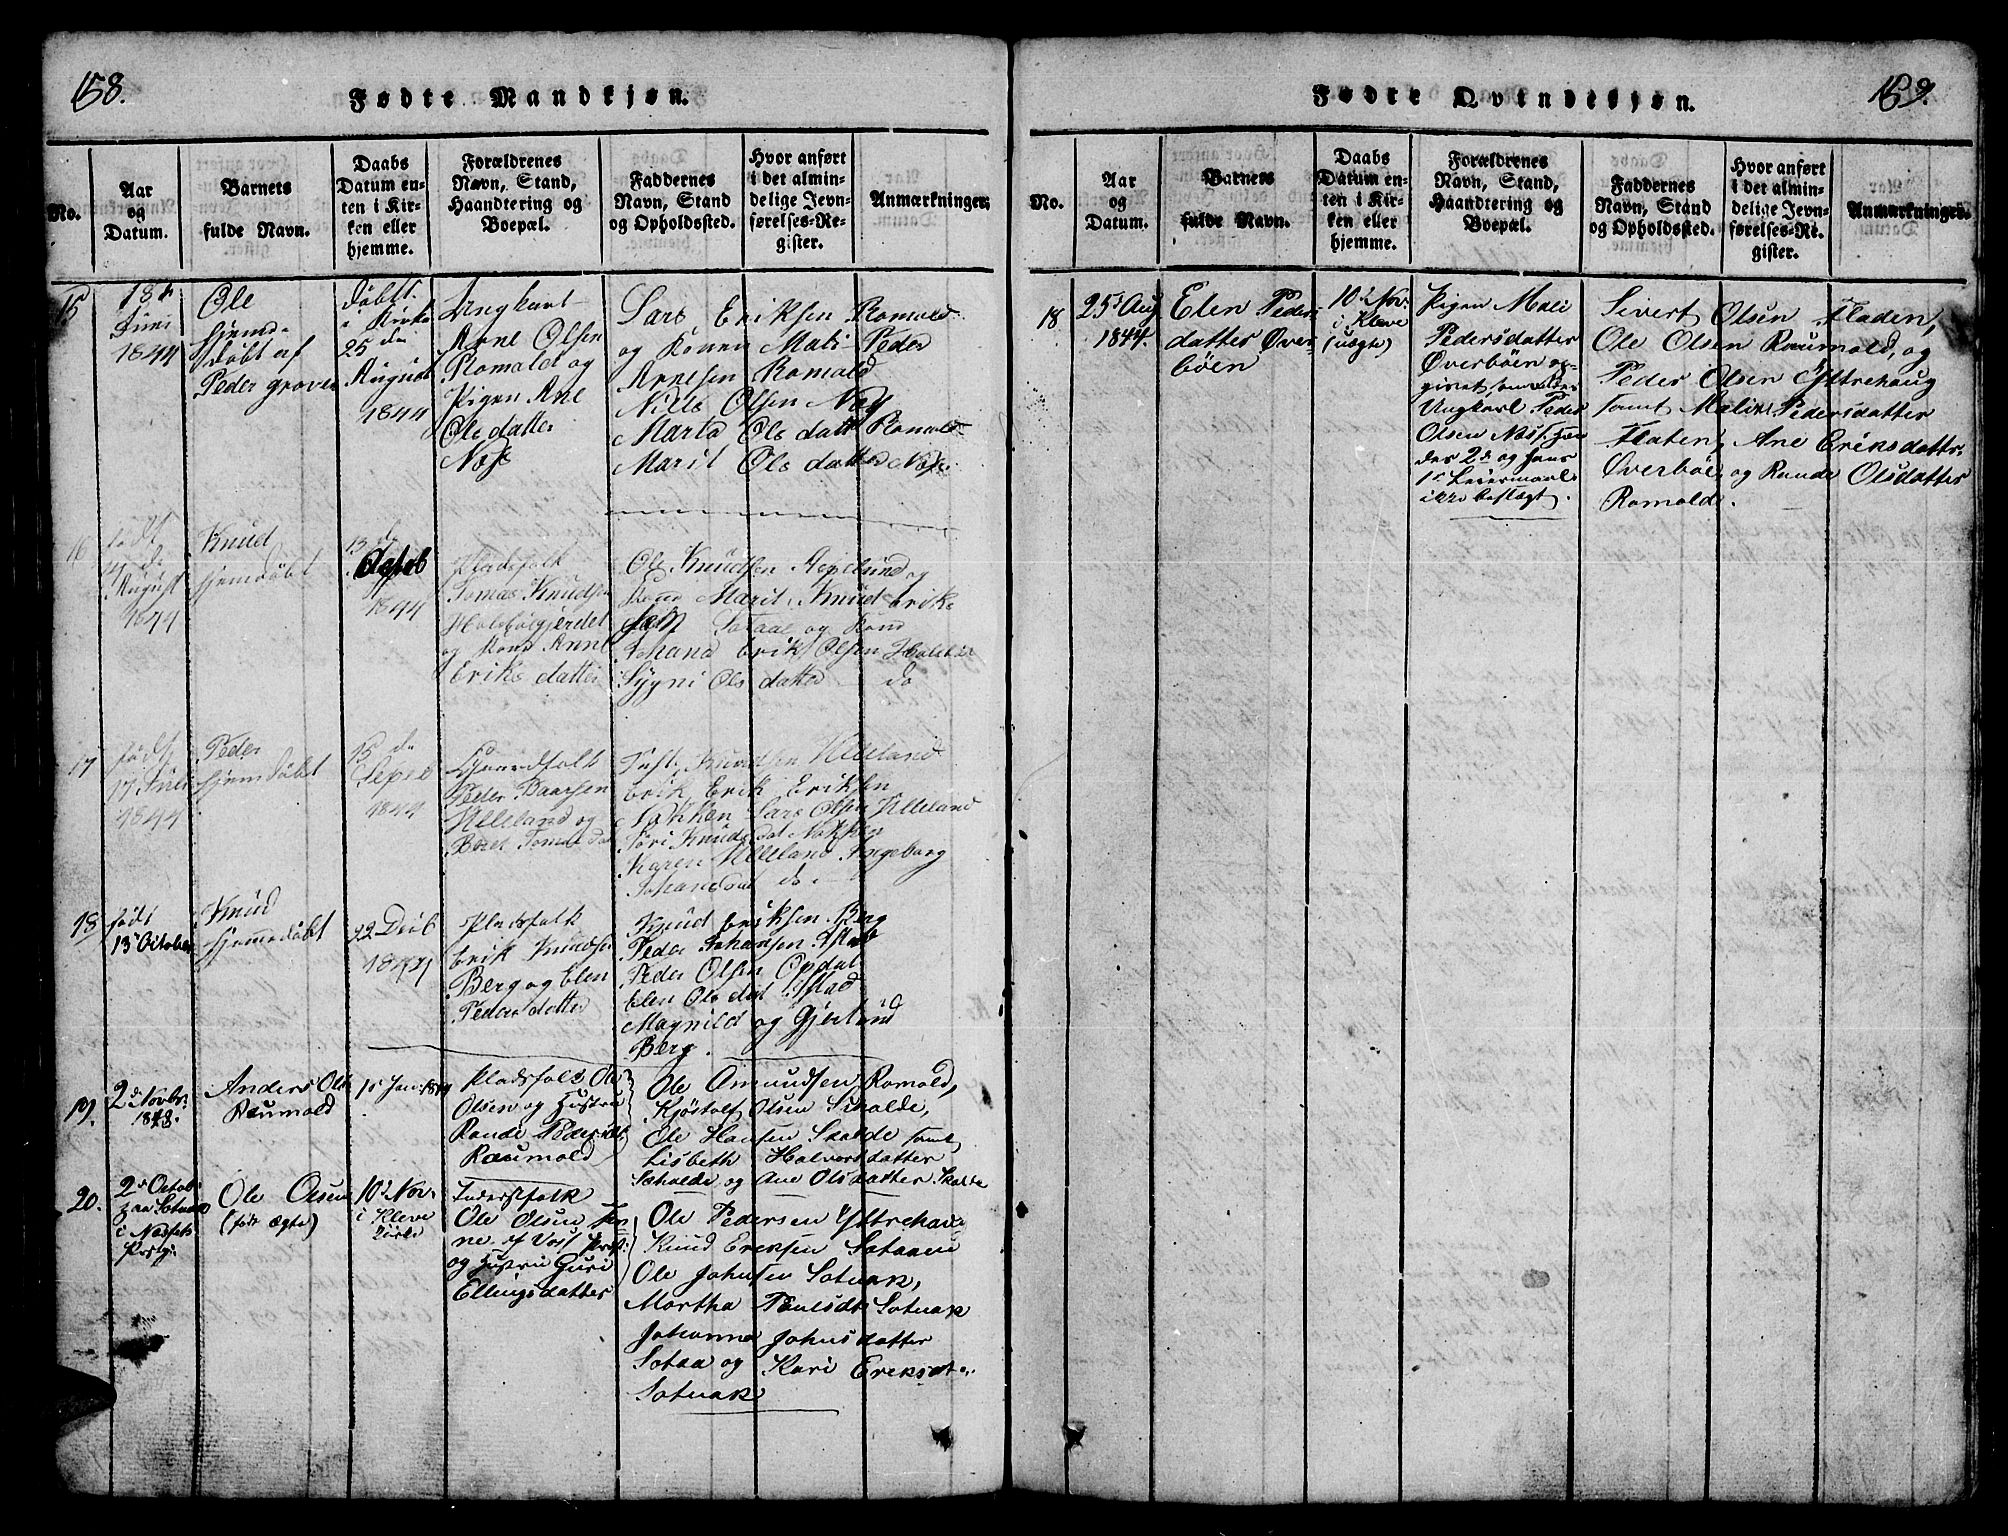 158.
Fødte Mandkjøn.
No.
Aar
og
Datum.
Barnets
fulde Navn.
Daabs
Datum en-
ten i Kir-
ken eller
hjemme.
Forældrenes
Navn, Stand,
Haandtering og
Boepæl.
Faddernes
Navn, Stand
og Opholdssted.
Hvor anført
i det almin-
delige Jevn-
førelses-Re-
gister.
Anmærkninger.
15
18
Juni
1844
Ole
hjem-
døbt af
Peder grover
døbt
i Kirke
25 de
August
1844
Ungkarl
Arne Olsen
Romald og
Pigen Ane
Olsdatter
Næs
Lars Eriksen Romald
og Konen Mali Peder
Arnesen Romald
Nills Olsen Næs
Marta Ols datt Romald
Marit Ols datter Næs
16
født
4 de
August
1844
Knud
hjemdøbt
15 de
1844
Pladsfolk
Tomas Knudsen
Holebøigjerdet
og Kone Anne
Eriks datter
Ole Knudsen
og
Kone Marit Knud Eriks
og Kone
Johana Erik Olsen Holebø
Sygni Ols datter do
17
født
17 Juli
1844
Peder
hjemdøbt
15 de
Septe
1844
Gaardfolk
Peder Baarsen
Helleland og
Beret Tomas da
Knudsen Helleland
Erik Erik Eriksen
Nakken Lars Olsen Helleland
Søri Knudsdat Nakken
Karen Helleland Ingeborg
Johansdat do
18
født
13 October
Knud
hjemmedøbt
22 Deib
1844
Pladsfolk
Erik Knudsen
Berg og Elen
Peders datter
Knud Eriksen Berg
Peder Johansen Istad
Peder Olsen Opdal
Elen Ols dat Istad
Magnild og Gjertrud
Berg.
19.
2 d Novbr
1843.
Anders Ols
Raumald
1s Jan 1844
Pladsfolk Ole
Olsen og Hustru
Rande Pedersdt
Raumald
Ole Amundsen Romald,
Kjøstolf Olsen Schalde,
Ole Hansen Scalde samt
Lisbeth Halvorsdatter
Schalde og Ane Olsdatter Skalde
20.
2 d Octob
paa Sotnak
i Nessets
Præstg:
Ole Olsen
(født ægte)
10 d Nov.
i Kleve
Kirke
Inderstfolk
Ole Olsen
af Vos Præst:
og Hustru Guri
Ellingsdatter
Ole Pedersen Yttrehaug
Knud Ereksen Sotaaen
Ole Johnsen Sotnak,
Martha Paulsdt Sotnak
Johanna Johnsdatter
Sotaa og Kari Ereksdt.
Sotnak
159.
Fødte Qvindekjøn.
No.
Aar
og
Datum.
Barnets
fulde Navn.
Daabs
Datum en-
ten i Kir-
ken eller
hjemme.
Forældrenes
Navn, Stand,
Haandtering og
Boepæl.
Faddernes
Navn, Stand
og Opholdssted.
Hvor anført
i det almin-
delige Jevn-
førelses-Re-
gister.
Anmærkninger.
18
25 d Aug
1844.
Elen Peders
datter Øver-
bøen
10 d Nov:
i Kleve
(uægte)
Pigen Mali
Pedersdatter
Øverbøen op-
givet
Ungkarl Peder
Olsen Næss. Hen
des 2 d og hans
1st Leiermaal
ikke beslægt.
Sivert Olsen Fladen,
Ole Olsen Raumald, og
Peder Olsen Yttrehaug
samt Malin Pedersdatter
Flaten, Ane Eriksdatter
Øverbøe og Rande Olsdatter
Romald.